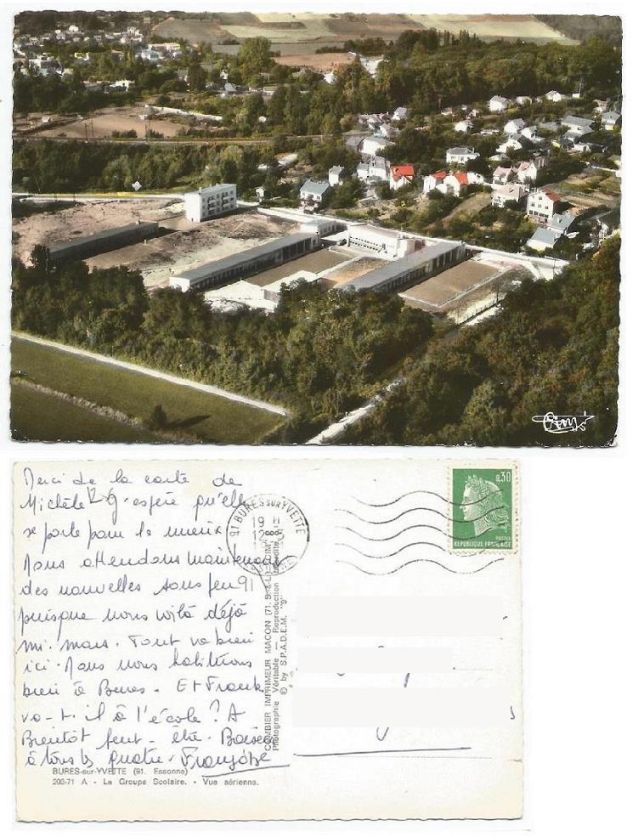 Cim
Merci de la carte de
Michèle. J'espère qu'elle
se porte pour le mieux
Nous attendons maintenant
des nouvelles sous peu
puisque nous voilà déjà
mi-mars. Tout va bien
ici. Nous nous habituons
bien à Bures. Et Franck
va-t-il à l'école? A
Bientôt peut-être. Baisers
à tous les quatre. Françoise
BURES-sur-YVETTE (91. Essonne)
200-71 A - Le Groupe Scolaire. - Vue aérienne.
COMBIER IMPRIMEUR MACON (71. S.-&-L.)
Photographie Véritable — Reproduction
© by S.P.A.D.E.M. "9"
91 BURES SUR YVETTE
19 H
12
91
0,30
POSTES
REPUBLIQUE FRANÇAISE